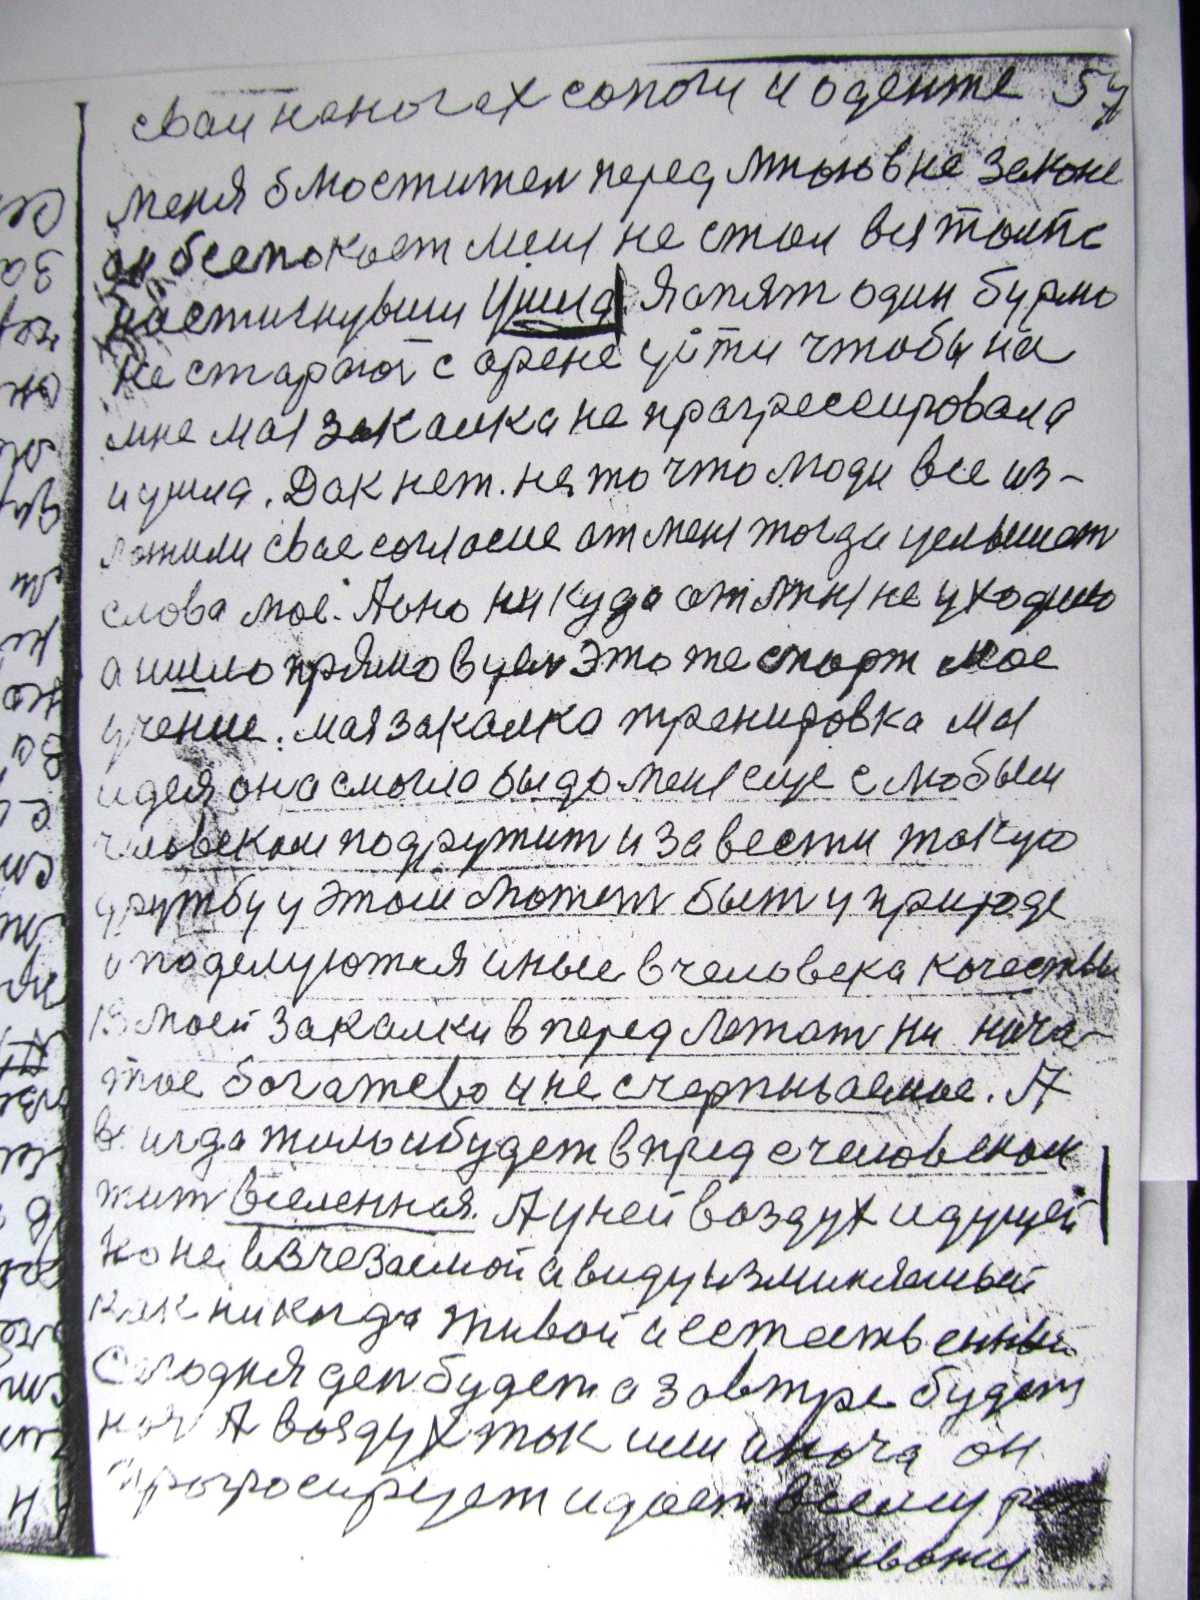 сваи наногах сопоги и оденте 57
меня блюстител перед мною вне законе
он беспокоет меня не стал вся толпа
настигнувши ушла. Я опят один бурно
не старает с арене уйти чтобы на
мне мая закалка не прагрессировала
и ушла. Дак нет. не то что люди все из-
ложили свае согласие от меня тогда услышат
слова мое. Аоно никуда от мня не уходило
а ишло прямо в цел это же спорт мое
учение. мая закалка тренировка мая
идея она смогла бы до меня еще с любым
человеком подружит и завести такую
дружбу у этом может быт у природе
и поделуются иные в человека качествы
из моей закалки в перед лежат ни нача-
тое богатсво и не счерпываемое. А
в игда жило и будет впред с человеком
жит вселенная. А у ней воздух идущей
но не изчезаемой а виду изминяемый
как никогда живой и естественный
Сегодня ден будет а завтре будет
ноч А воздух так или иначе он
прогросирует и дает всему